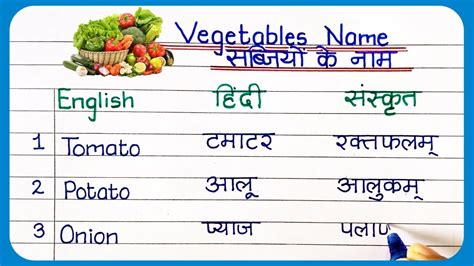 Vegetables Name
सब्जियों के नाम
English हिंदी संस्कृत
1 Tomato टमाटर रक्तफलम्
2 Potato आलू आलुकम्
3 Onion प्याज